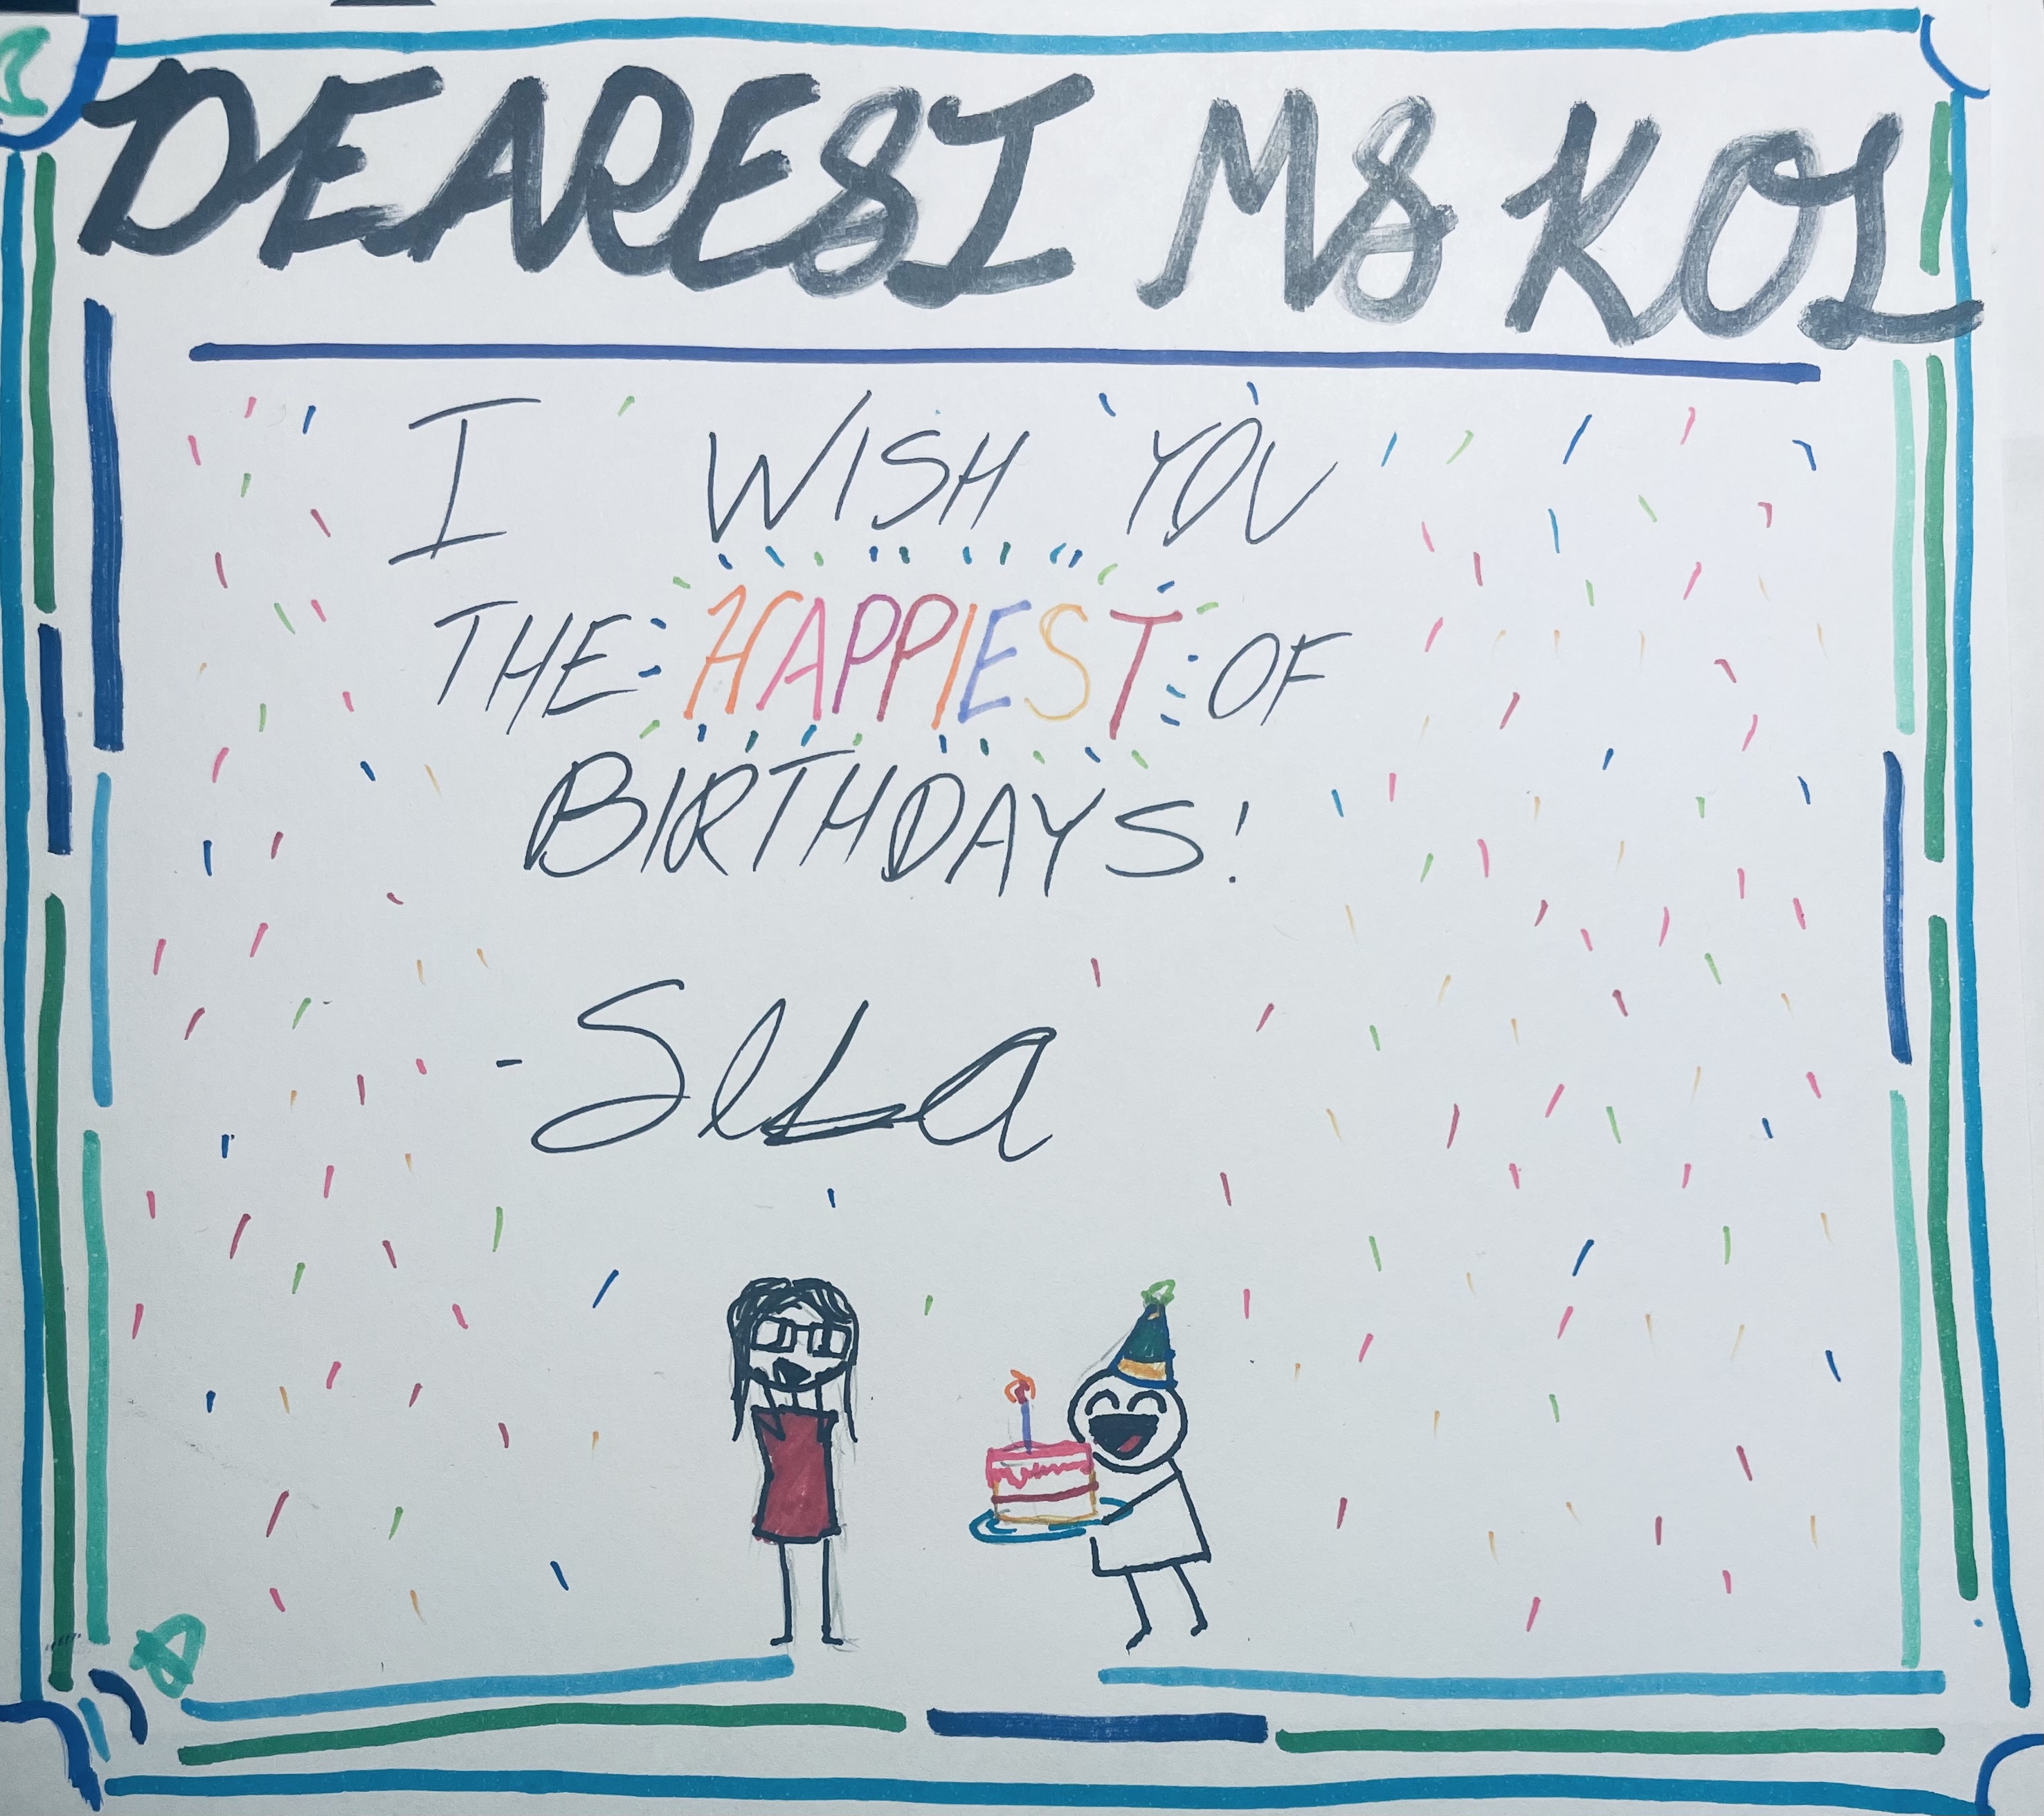 DEAREST MS KOL
I WISH YOU
THE HAPPIEST OF
BIRTHDAYS!